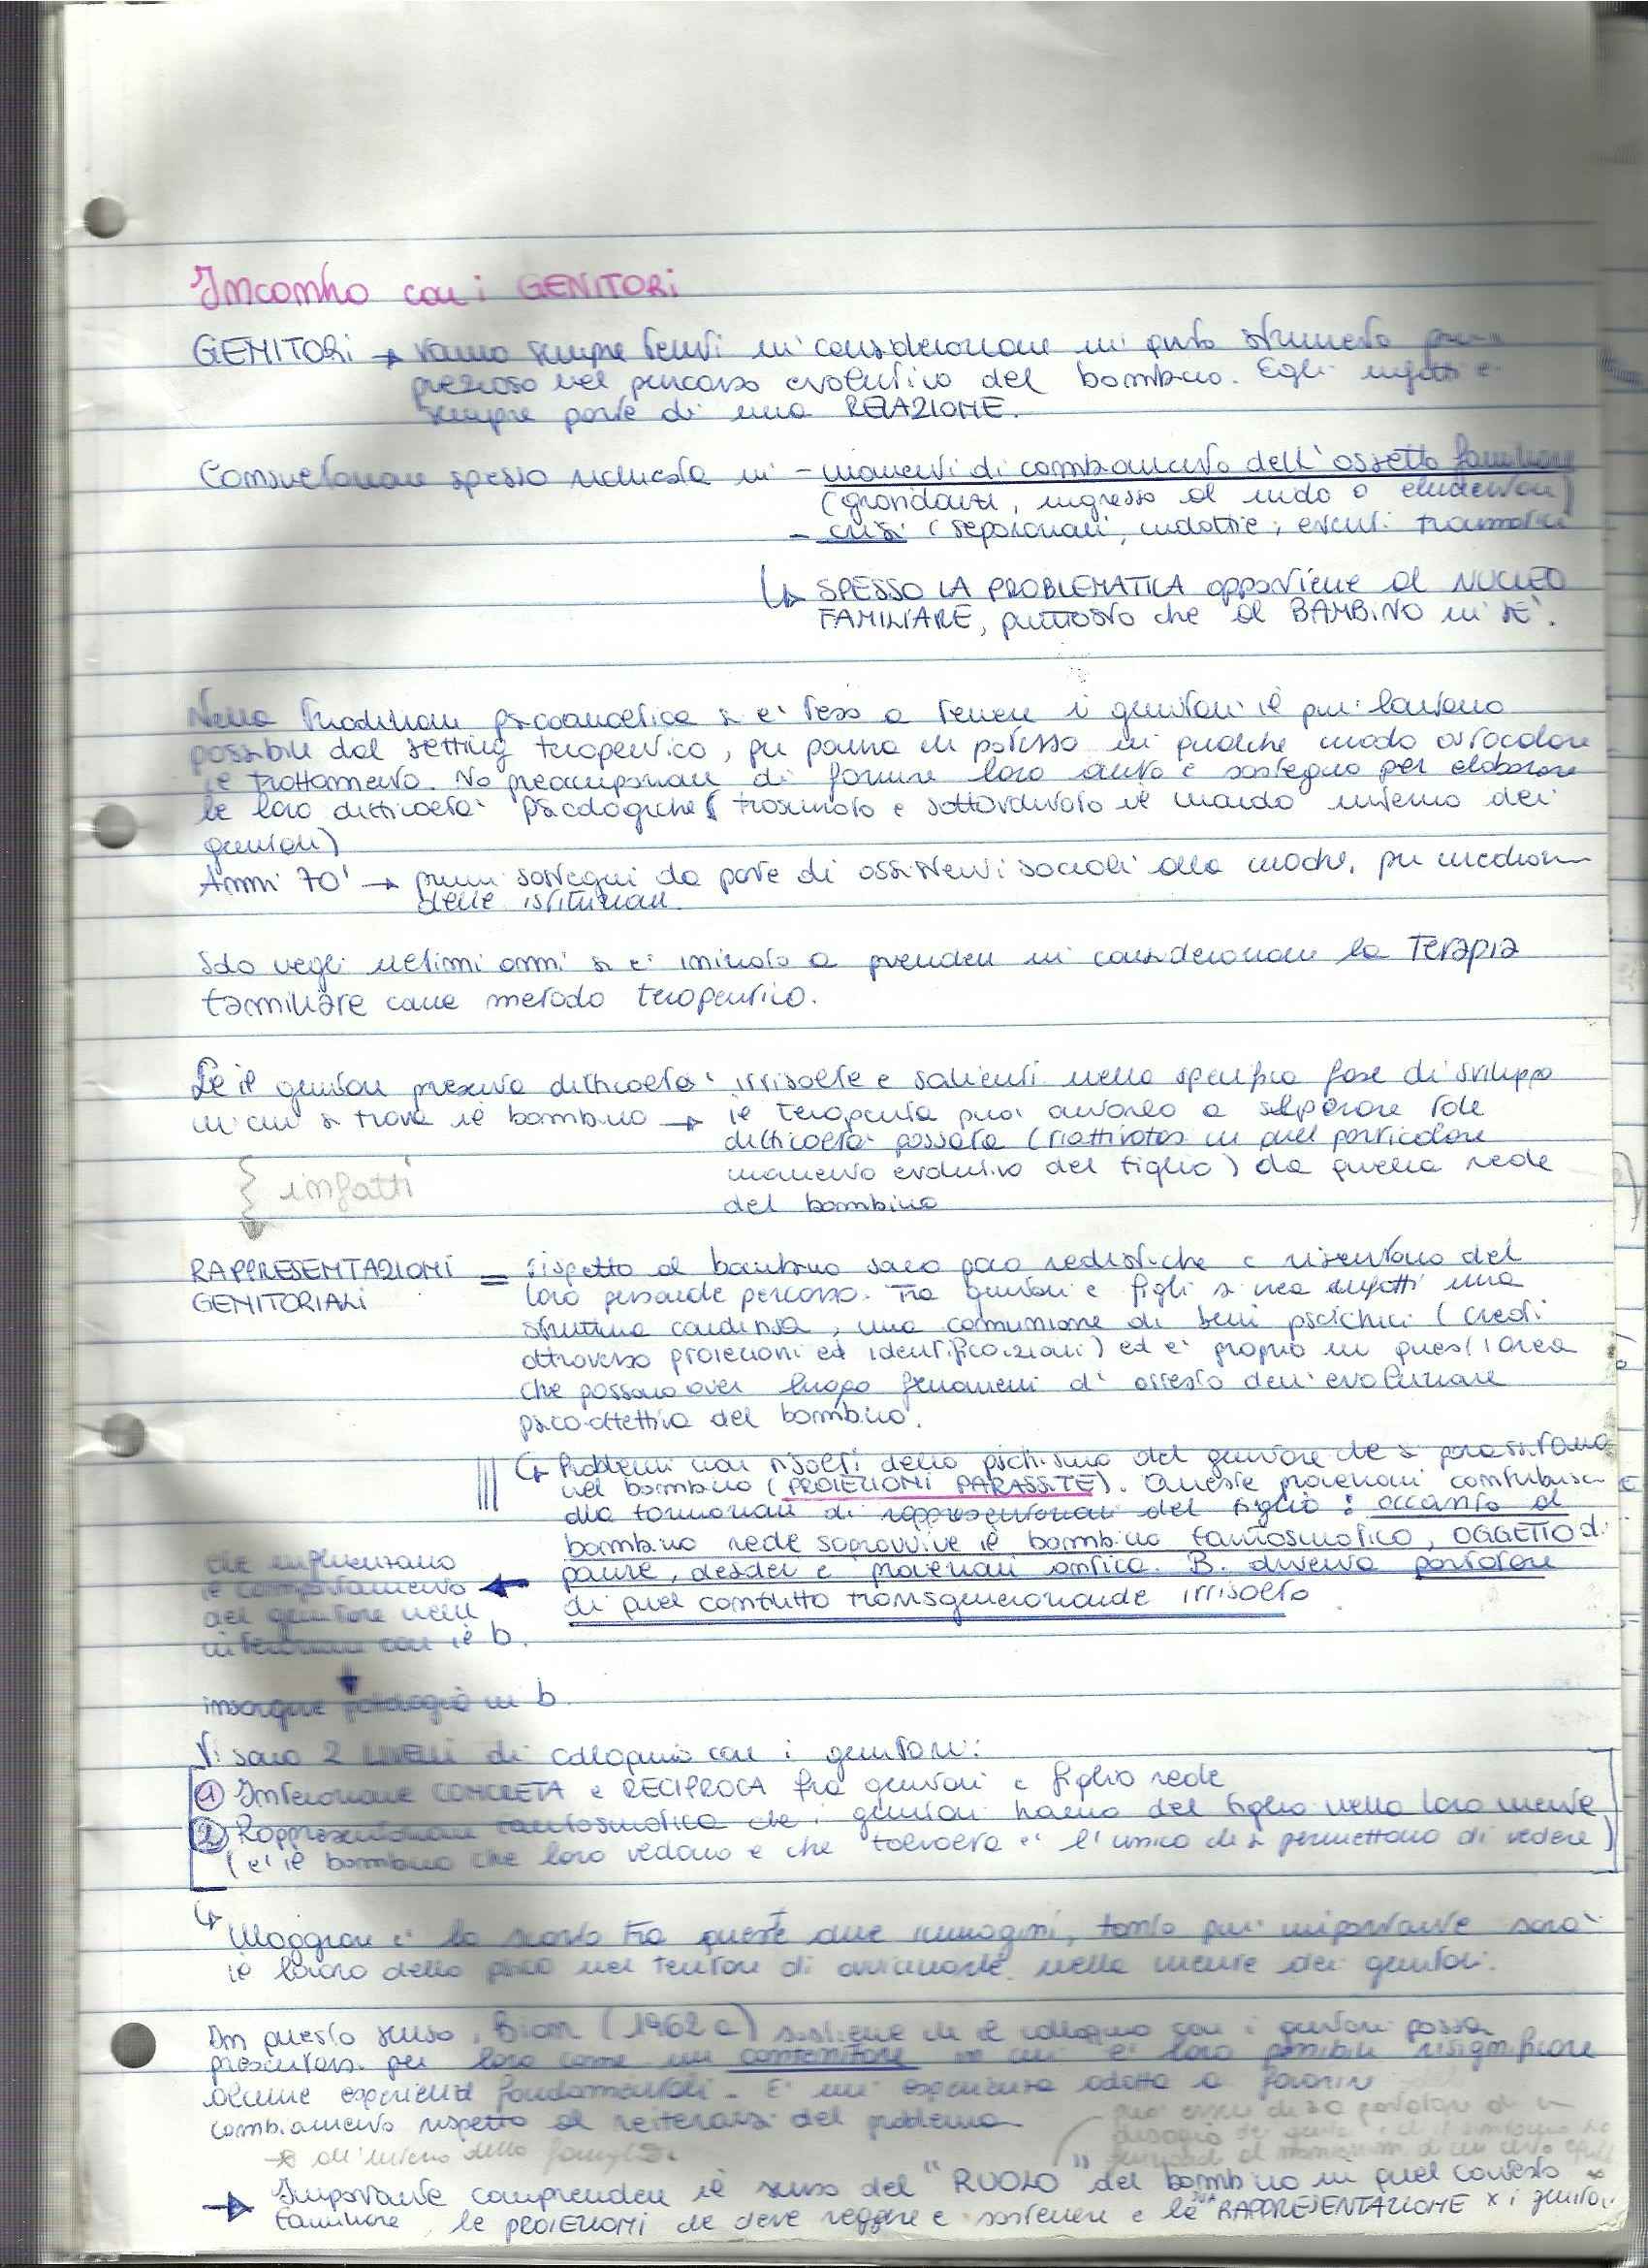 Incontro con i GENITORI
GENITORI → vanno sempre tenuti in considerazione in qnto strumento
prezioso nel percorso evolutivo del bambino. Egli infatti è
sempre parte di una RELAZIONE.
Consultazione spesso richiesta in - momenti di cambiamento dell'assetto familiare
(gravidanza, ingresso al nido o elementari)
- crisi (separazioni, malattie, eventi traumatici
↳ SPESSO LA PROBLEMATICA appartiene al NUCLEO
FAMILIARE, piuttosto che al BAMBINO in SE'.
Nella tradizione psicoanalitica si e' teso a tenere i genitori il più lontano
possibile dal setting terapeutico, per paura che potesse in qualche modo ostacolare
il trattamento. No preoccupazione di fornire loro aiuto e sostegno per elaborare
le loro difficoltà psicologiche (trascurato e sottovalutato il mondo interno dei
genitori)
Anni 70' → primi sostegni da parte di assistenti sociali alla madre, per mediazione
delle istituzioni.
Solo negli ultimi anni si e' iniziato a prendere in considerazione la Terapia
familiare come metodo terapeutico.
Se il genitore presenta difficoltà irrisolte e salienti nella specifica fase di sviluppo
in cui si trova il bambino → il terapeuta può aiutarlo a separare tale
difficoltà passata (riattivatasi in quel particolare
momento evolutivo del figlio) da quella reale
del bambino
{ infatti
RAPPRESENTAZIONI = rispetto al bambino sono poco realistiche e risentono del
GENITORIALI loro personale percorso. Tra genitori e figli si crea infatti una
struttura condivisa, una comunione di beni psichici (creati
attraverso proiezioni ed identificazioni) ed e' proprio in quest'area
che possono aver luogo fenomeni di arresto dell'evoluzione
psico-affettiva del bambino.
↳ Problemi non risolti dello psichismo del genitore che si parassitano
nel bambino (PROIEZIONI PARASSITE). Queste proiezioni contribuiscono
alla formazione di rappresentazioni del figlio : accanto al
bambino reale sopravvive il bambino fantasmatico, OGGETTO di
paure, desideri e proiezioni antica. B. diventa portatore
di quel conflitto transgenerazionale irrisolto
che influenzano
il comportamento ←
del genitore nell'
interazione con il b.
insorgere patologia in b.
Vi sono 2 LIVELLI di colloquio con i genitori:
① Interazione CONCRETA e RECIPROCA fra genitori e figlio reale
② Rappresentazione fantasmatica che i genitori hanno del figlio nella loro mente
(e' il bambino che loro vedono e che talvolta e' l'unico che si permettono di vedere)
↳ Maggiore è lo scarto tra queste due immagini, tanto più importante sarà
il lavoro dello psico nel tentare di avvicinarle nella mente dei genitori.
In questo senso, Bion (1962 a) sostiene che il colloquio con i genitori possa
presentarsi per loro come un contenitore in cui e' loro possibile risignificare
alcune esperienze fondamentali. E' un'esperienza adatta a favorire
cambiamento rispetto al reiterarsi del problema
→ all'interno della famiglia.
può essere di sé portatore di un
disagio dei genitori
→ Importante comprendere il senso del "RUOLO" del bambino in quel contesto
familiare, le PROIEZIONI che deve reggere e sostenere e la sua RAPPRESENTAZIONE x i genitori